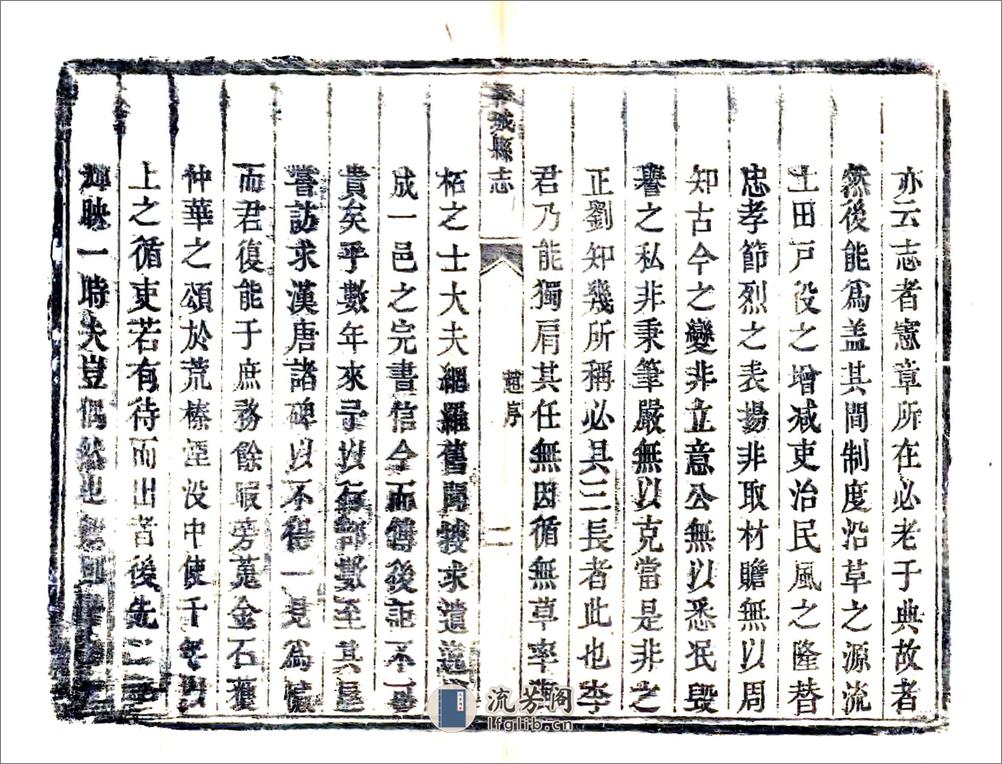 亦云志者憲章所在必老于典故者
然後能爲盖其間制度沿革之源流
土田戸役之增减吏治民風之隆替
忠孝節烈之表揚非取材贍無以周
知古今之變非立意公無以悉泯毀
譽之私非秉筆嚴無以克當是非之
正劉知幾所稱必具三長者此也李
君乃能獨肩其任無因循無草率
城縣志
序
二
栢之士大夫網羅舊聞搜求遺
成一邑之完書信今而傳後詎不
貴矣乎數年來予以數至其
嘗訪求漢唐諸碑以不得一見爲憾
而君復能于庶務餘暇旁蒐金石獲
仲華之頌於荒榛湮没中使千年
上之循吏若有待而出者後先
輝映一時夫豈偶然也
流芳阁
lfglib.cn